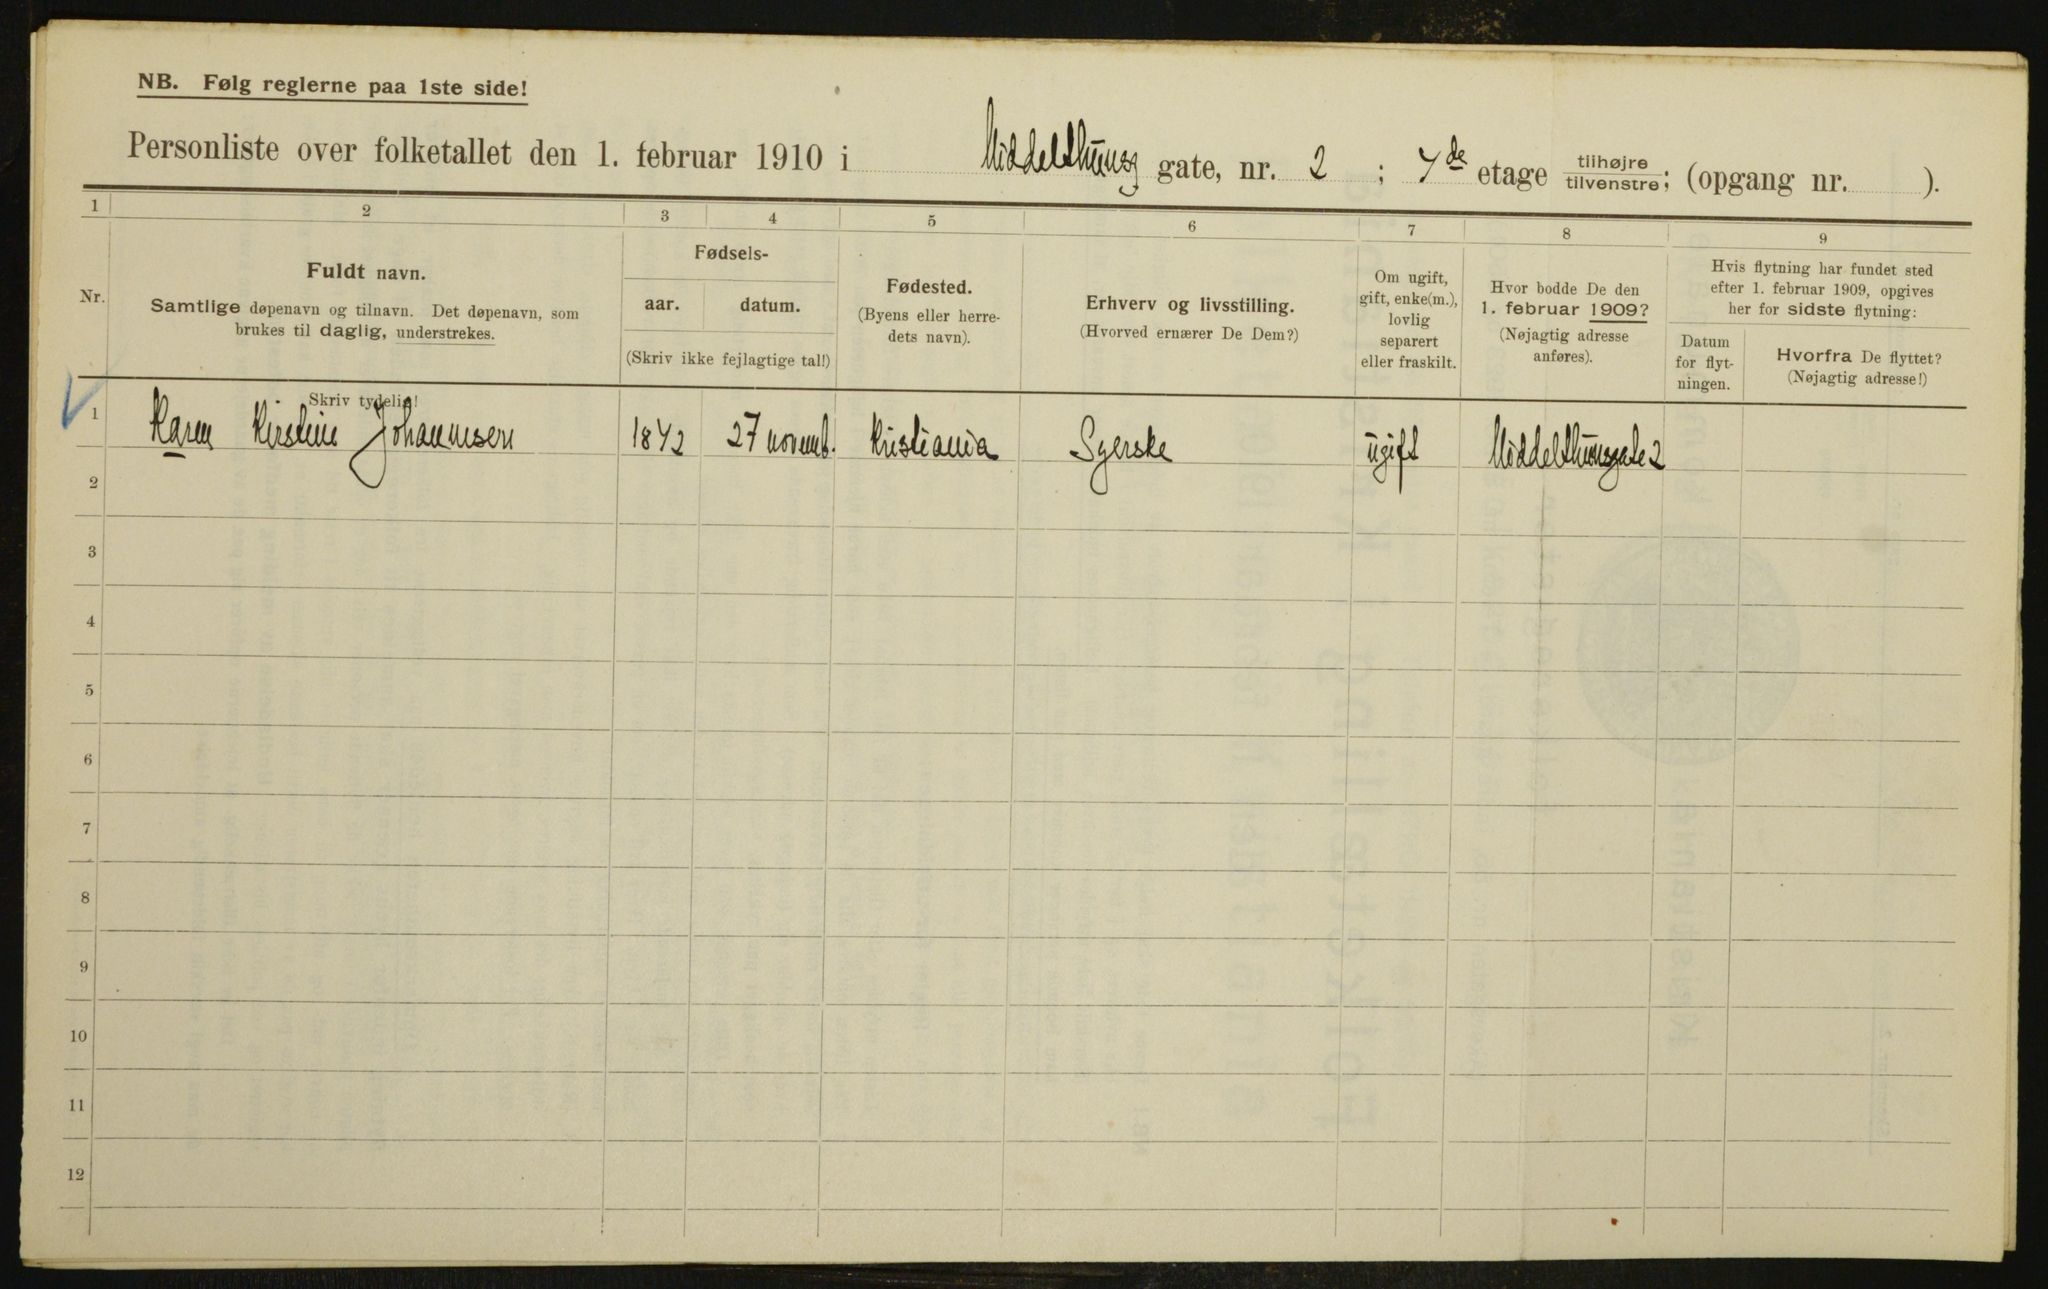 NB. Følg reglerne paa 1ste side!
Personliste over folketallet den 1. februar 1910 i Middelthuns gate, nr. 2 ; 4de etage tilhøjre/tilvenstre; (opgang nr. ).
1 2 3 4 5 6 7 8 9
Nr.
Fuldt navn.
Samtlige døpenavn og tilnavn. Det døpenavn, som
brukes til daglig, understrekes.
Skriv tydelig!
Fødsels-
aar. datum.
(Skriv ikke fejlagtige tal!)
Fødested.
(Byens eller herre-
dets navn).
Erhverv og livsstilling.
(Hvorved ernærer De Dem?)
Om ugift,
gift, enke(m.),
lovlig
separert
eller fraskilt.
Hvor bodde De den
1. februar 1909?
(Nøjagtig adresse
anføres).
Hvis flytning har fundet sted
efter 1. februar 1909, opgives
her for sidste flytning:
Datum
for flyt-
ningen.
Hvorfra De flyttet?
(Nøjagtig adresse!)
1 Karen Kirstine Johannesen 1842 27 novemb. Kristiania Syerske ugift Middelthunsgate 2
2
3
4
5
6
7
8
9
10
11
12